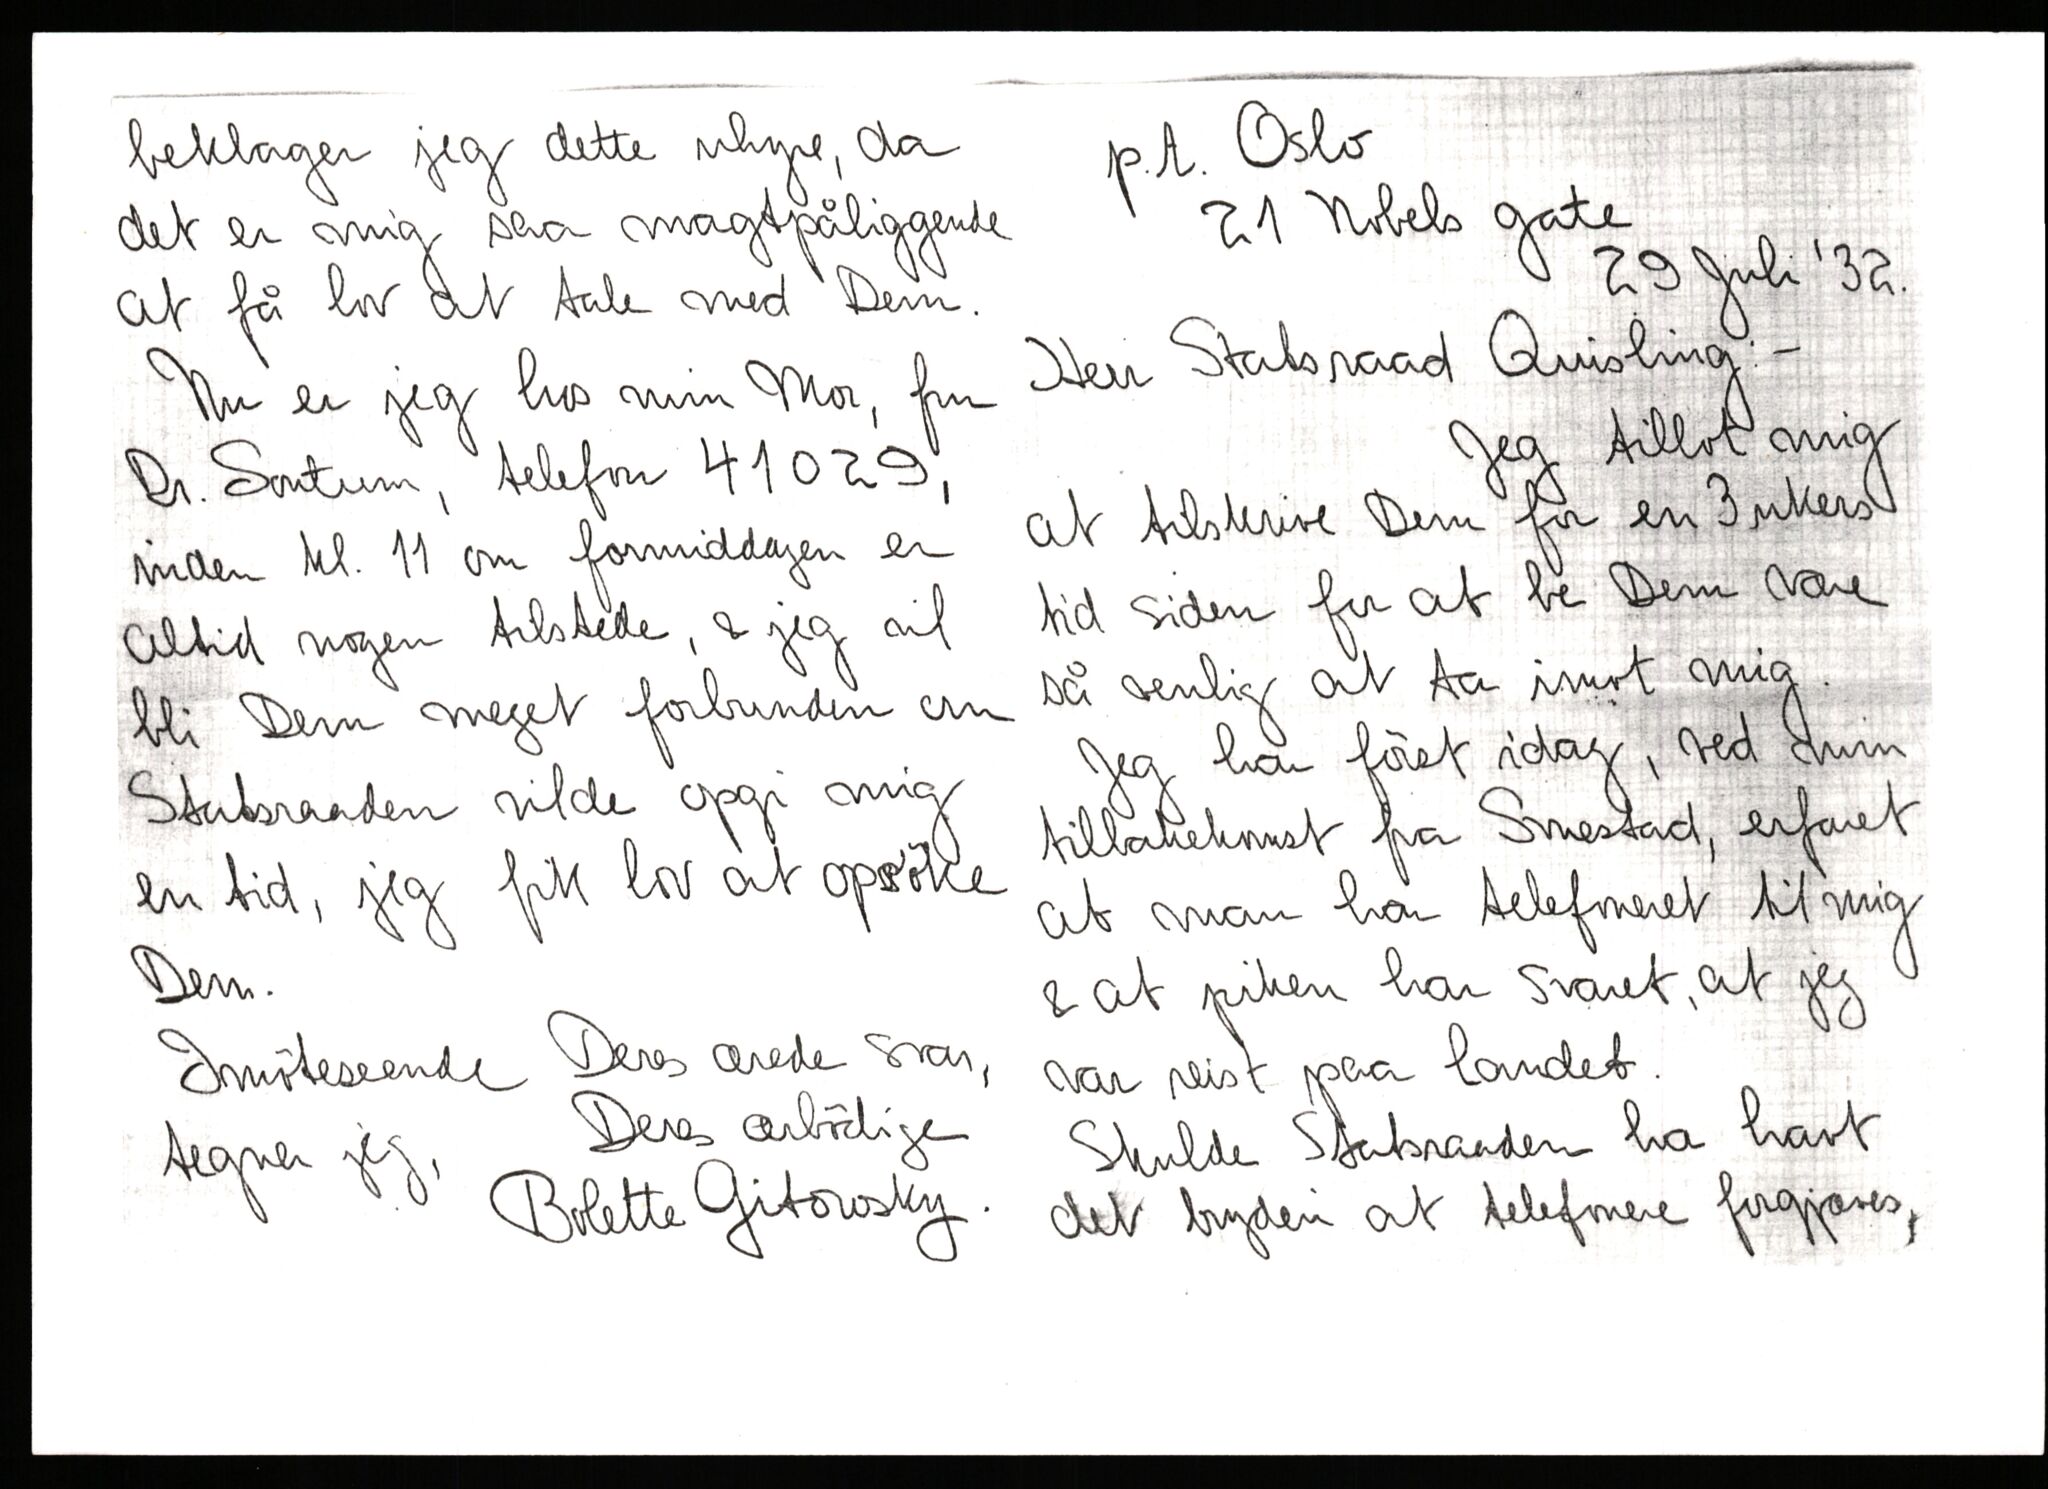 p.t. Oslo
21 Nobels gate
29 Juli '32.
Herr Statsraad Quisling:-
Jeg tillot mig
at tilskrive Dem for en 3 ukers
tid siden for at be Dem være
så venlig at ta imot mig.
Jeg har först idag, ved min
tilbakekomst fra Smestad, erfaret
at man har telefoneret til mig
& at piken har svaret, at jeg
var reist paa landet.
Skulde Statsraaden ha havt
det bryderi at telefonere forgjæves,
beklager jeg dette uhyre, da
det er mig saa magtpåliggende
at få lov at tale med Dem.
Nu er jeg hos min Mor, fru
Dr. Sontum, telefon 41029,
inden kl. 11 om formiddagen er
altid nogen tilstede, & jeg vil
bli Dem meget forbunden om
Statsraaden vilde opgi mig
en tid, jeg fik lov at opsöke
Dem.
Imöteseende Deres ærede svar,
tegner jeg, Deres ærbödige
Bolette Gitowsky.